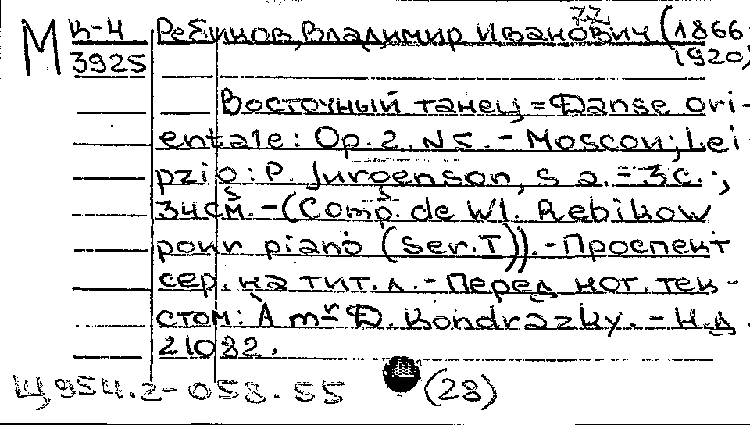 М К-4 Ребиков, Владимир Иванович (1866-
3925 1920)
Восточный танец = Danse ori-
entale: Op. 2. N 5. - Moscou; Lei-
pzig: P. Jurgenson, s. a. - 3 с.;
34 см. - (Comp. de Wl. Rebikow
pour piano (Ser. I)). - Проспект
сер. на тит. л. - Перед нот. тек-
стом: À mr D. Kondrazky. - Н.д.
21082.
Щ954.2-058.55 (28)